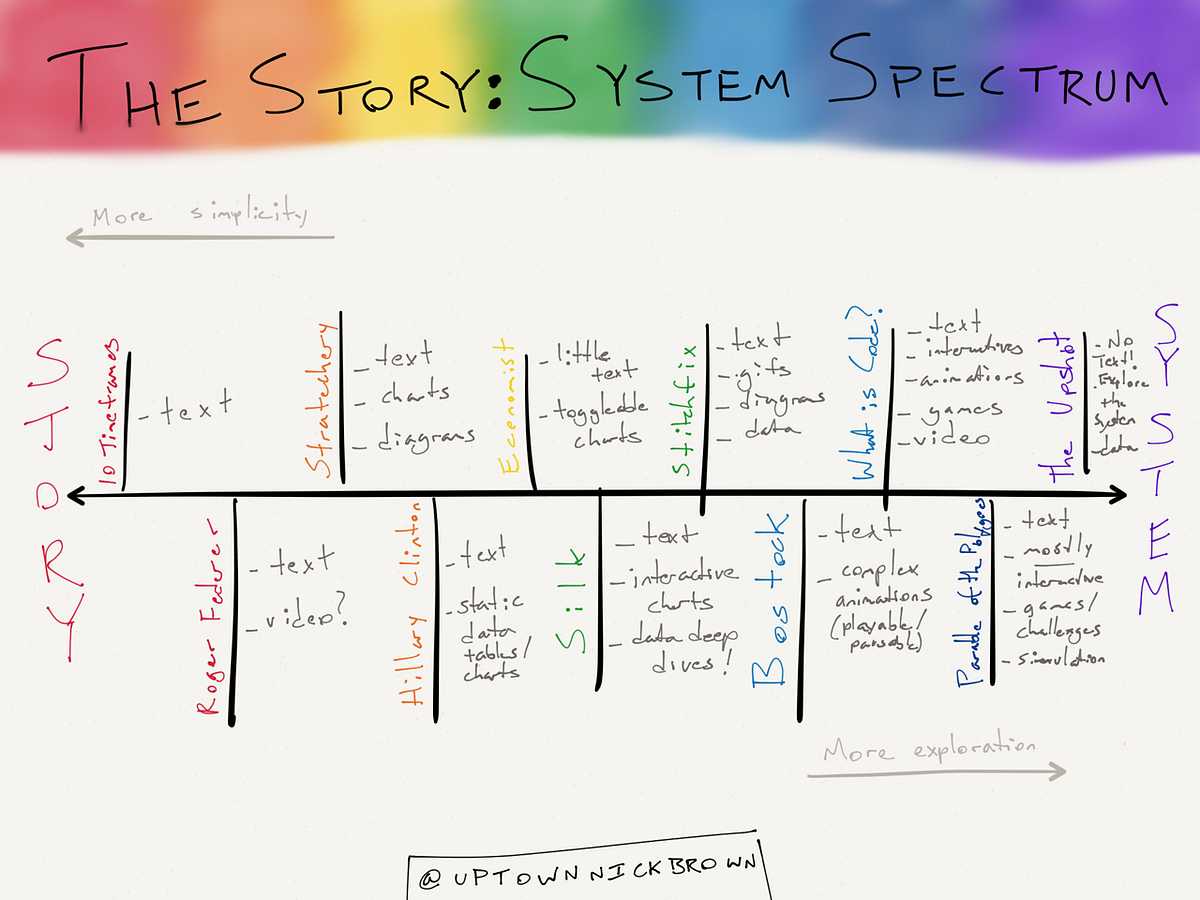 THE STORY: SYSTEM SPECTRUM
More simplicity
STORY
10 Timeframes
- text
Stratechery
- text
- charts
- diagrams
Economist
- little
text
- toggleable
charts
Stitchfix
- text
- gifs
- diagrams
- data
What is Code?
- text
- interactives
- animations
- games
- video
the Upshot
- No
Text!
- Explore
the
system
- data
SYSTEM
Roger Federer
- text
- video?
Hillary Clinton
- text
- static
data
tables/
charts
Silk
- text
- interactive
charts
- data deep
dives!
Bostock
- text
- complex
animations
(playable/
pausable)
Parable of the Polygons
- text
- mostly
interactive
- games/
challenges
- simulation
More exploration
@UPTOWNNICKBROWN